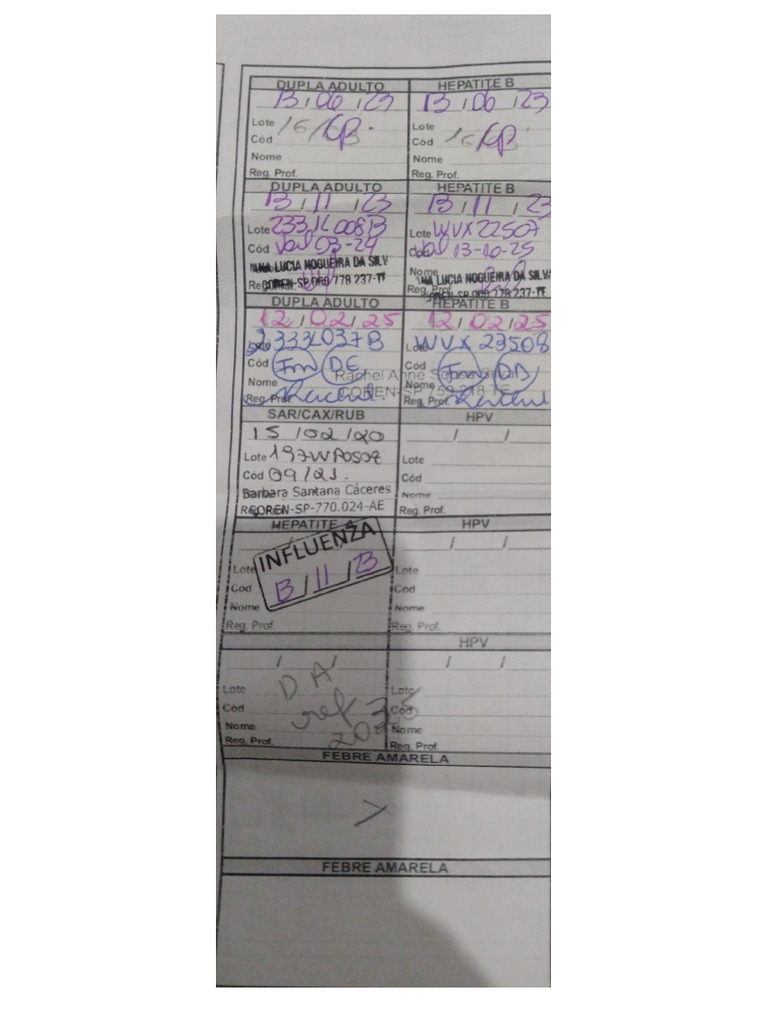 DUPLA ADULTO HEPATITE B
13/06/23 13/06/23
Lote Lote
Cód Cód
Nome Nome
Reg. Prof. Reg. Prof.
DUPLA ADULTO HEPATITE B
13/11/23 13/11/23
Lote 233L008B Lote WVX22507
Cód Val 03-24 Cód Val 13-10-25
Nome
ANA LUCIA NOGUEIRA DA SILV ANA LUCIA NOGUEIRA DA SILVA
COREN-SP 778.237-TE Reg. Prof. COREN-SP 778.237-TE
DUPLA ADULTO HEPATITE B
12/02/25 12/02/25
Lote 2333L037B Lote WVX 23508
Cód Im DE Cód Im
Nome Rachel Anne Nome
Reg. Prof. Rachel COREN-SP Reg. Prof.
SAR/CAX/RUB HPV
15/02/20 / /
Lote Lote
Cód 09/21. Cód
Barbara Santana Cáceres Nome
COREN-SP-770.024-AE Reg. Prof.
HEPATITE A HPV
INFLUENZA / /
Lote Lote
Cód 13/11/ Cód
Nome Nome
Reg. Prof. Reg. Prof.
HPV
/ / / /
Lote DA Lote
Cód ref Cód
Nome Nome
Reg. Prof. Reg. Prof.
FEBRE AMARELA
FEBRE AMARELA